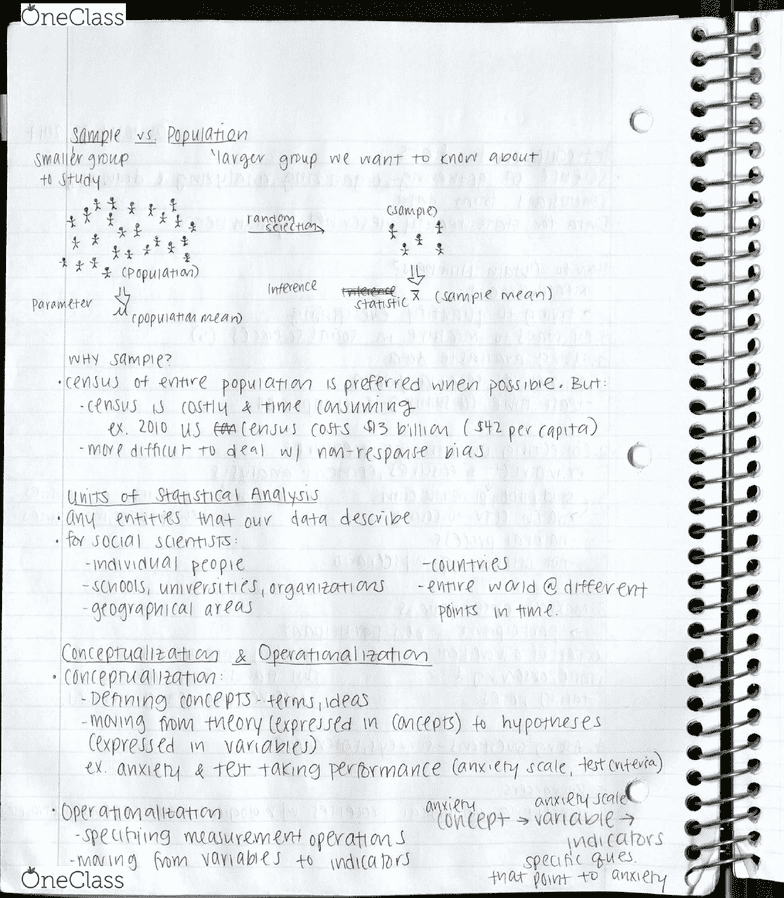 OneClass
Sample vs. Population
smaller group
to study
larger group we want to know about
(population)
random
selection
(sample)
Parameter
μ (population mean)
Inference
inference
statistic x̄ (sample mean)
WHY sample?
• census of entire population is preferred when possible. But:
- census is costly & time consuming
ex. 2010 US census costs $13 billion ($42 per capita)
- more difficult to deal w/ non-response bias
Units of Statistical Analysis
• any entities that our data describe
• for social scientists:
- individual people
- schools, universities, organizations
- geographical areas
- countries
- entire world @ different
points in time.
Conceptualization & Operationalization
• conceptualization:
- Defining concepts - terms, ideas
- moving from theory (expressed in concepts) to hypotheses
(expressed in variables)
ex. anxiety & test taking performance (anxiety scale, test criteria)
• Operationalization
- specifying measurement operations
- moving from variables to indicators
anxiety anxiety scale
concept → variable →
indicators
specific ques.
that point to anxiety
OneClass